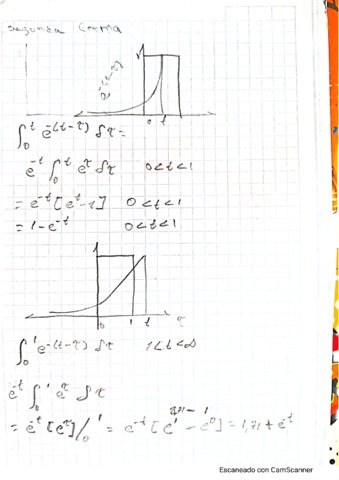 Segunda forma
e^-(t-τ)
1
0 t
∫₀ᵗ e^-(t-τ) δτ =
e^-t ∫₀ᵗ e^τ δτ 0<t<1
= e^-t [e^t-1] 0<t<1
= 1-e^-t 0<t<1
1
0 1 t τ
∫₀¹ e^-(t-τ) δτ 1<t<∞
e^-t ∫₀¹ e^τ δτ
= e^-t [e^τ]/₀¹ = e^-t [e¹ - e⁰] = 1,71 + e^-t
Escaneado con CamScanner